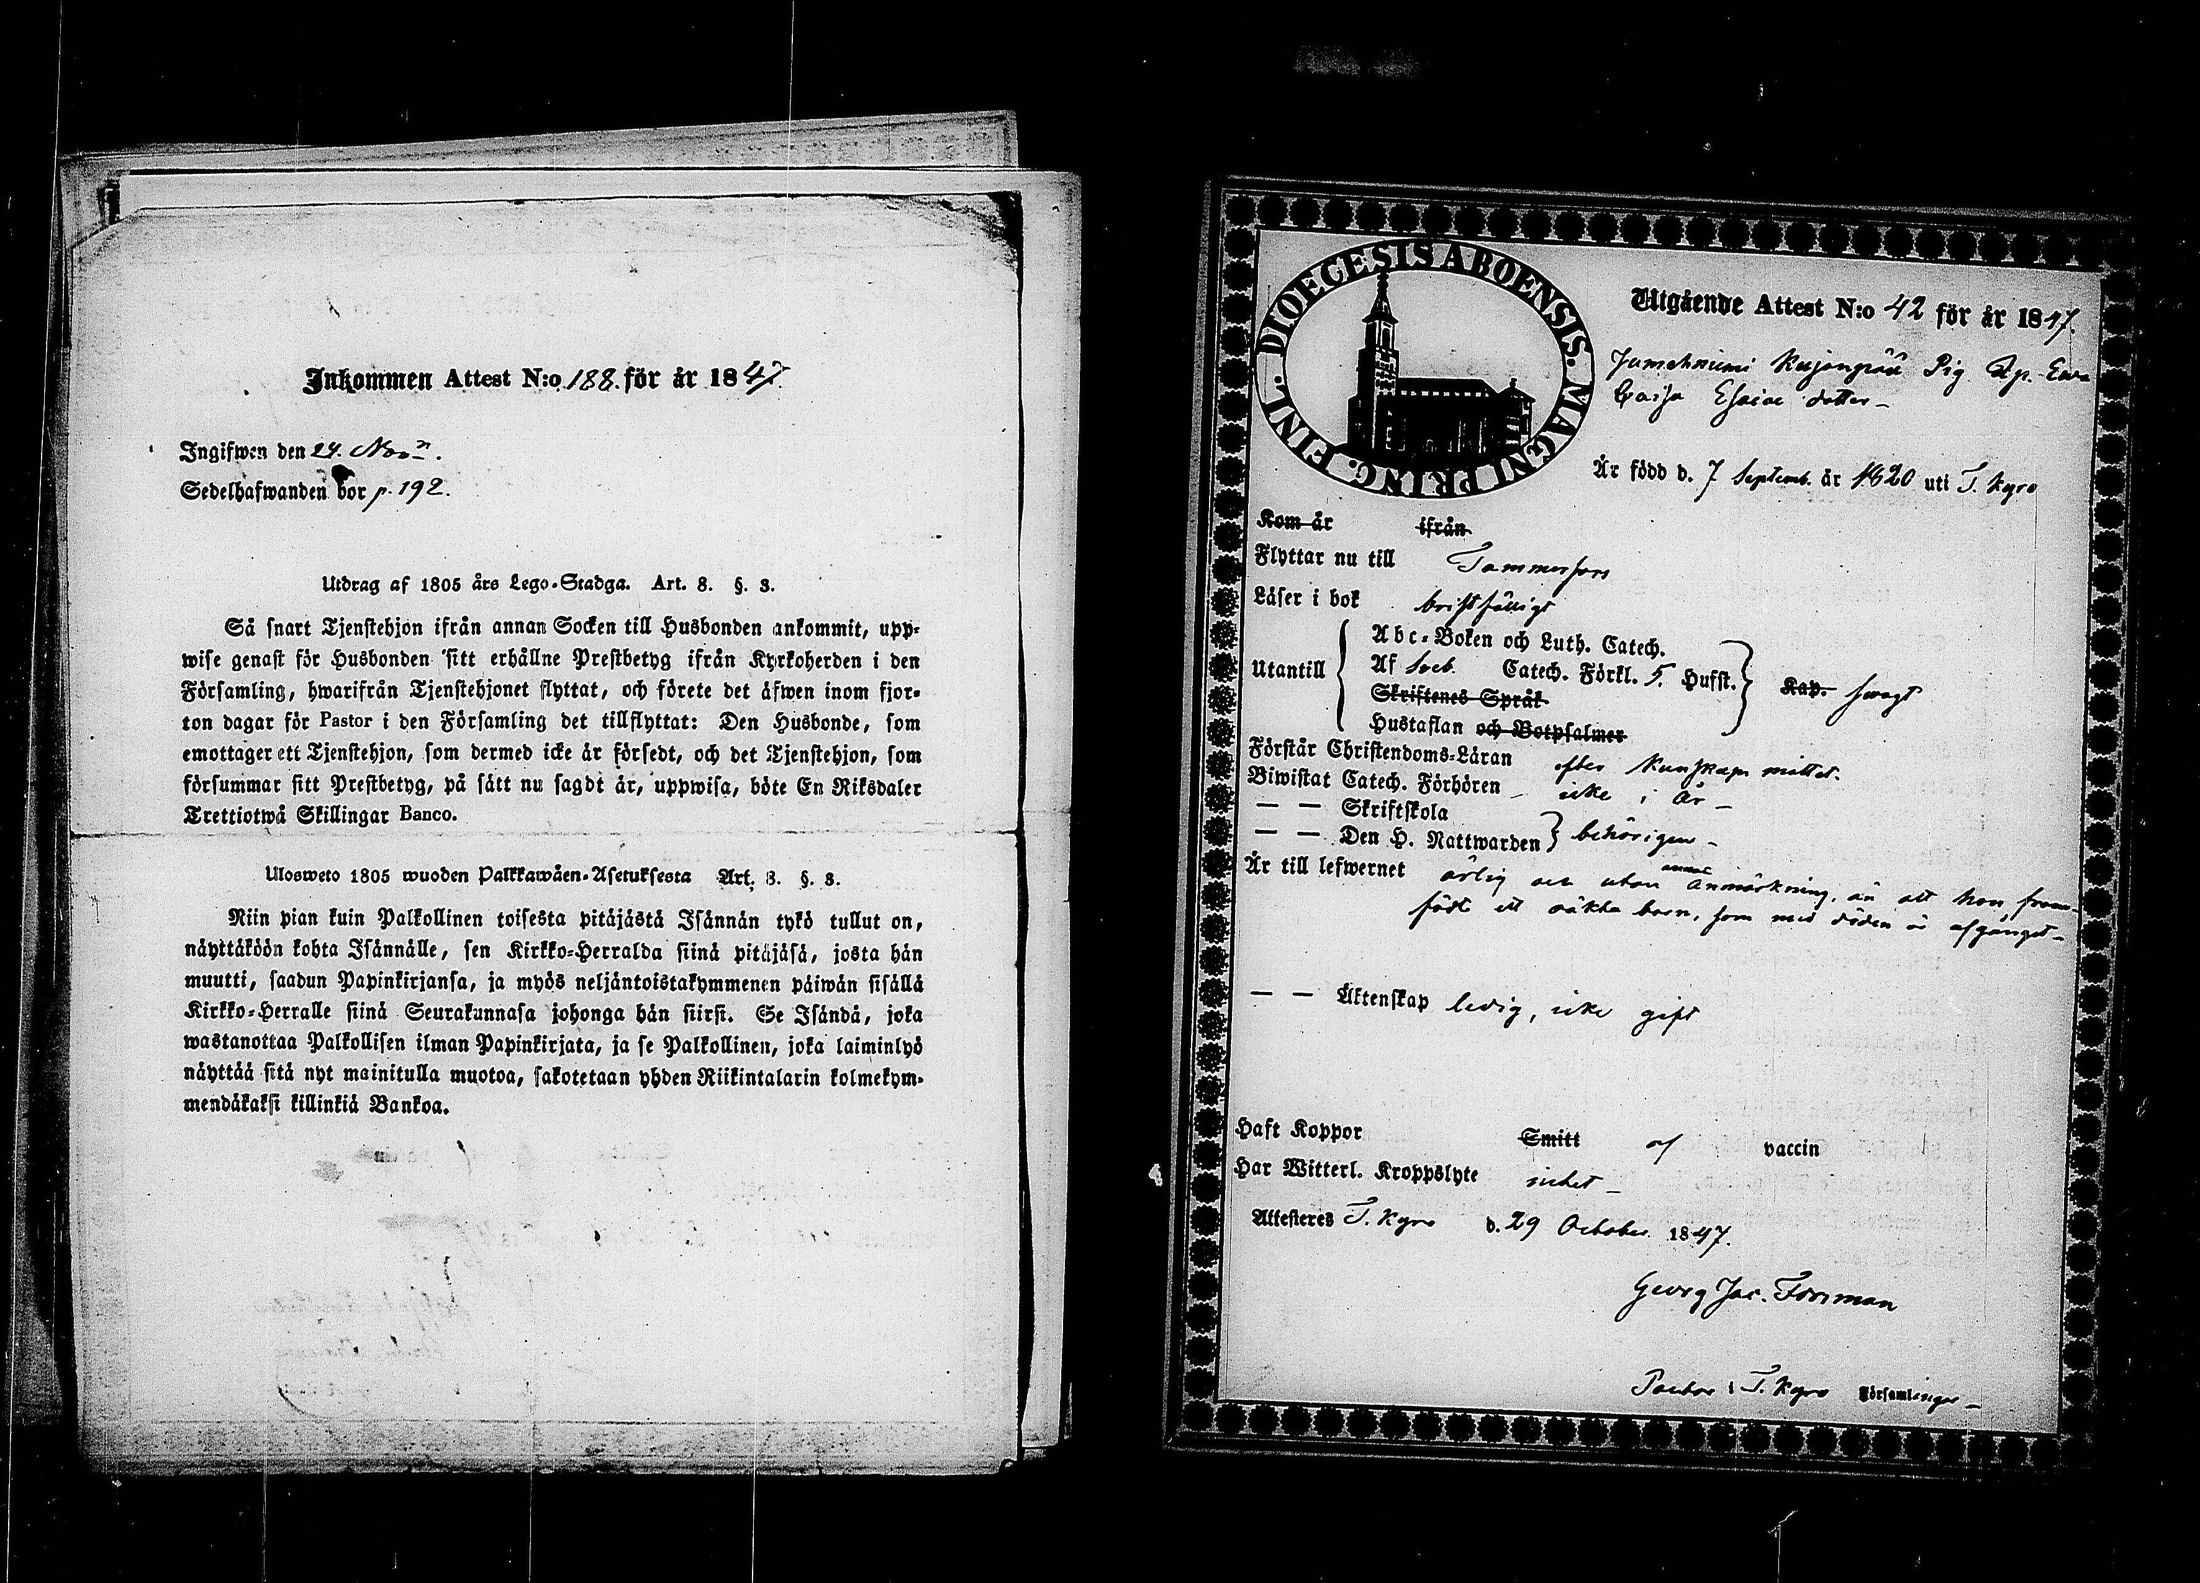 Inkommen Attest N:o 188. för år 1847
Ingifwen den 24. Nov
Sedelhafwanden bor p. 192.
Utdrag af 1805 års Lego-Stadga. Art. 8. §. 3.
Så snart Tjenstehjon ifrån annan Socken till Husbonden ankommit, upp-
wise genast för Husbonden sitt erhållne Prestbetyg ifrån Kyrkoherden i den
Församling, hwarifrån Tjenstehjonet flyttat, och förete det äfwen inom fjor-
ton dagar för Pastor i den Församling det tillflyttat: Den Husbonde, som
emottager ett Tjenstehjon, som dermed icke är försedt, och det Tjenstehjon, som
försummar sitt Prestbetyg, på sätt nu sagdt är, uppwisa, böte En Riksdaler
Trettiotwå Skillingar Banco.
Ulosweto 1805 wuoden Palkkawäen-Asetuksesta Art. 8. §. 3.
Niin pian kuin Palkollinen toisesta pitäjästä Isännän tykö tullut on,
näyttäköön kohta Isännälle, sen Kirkko-Herralda siinä pitäjäsä, josta hän
muutti, saadun Papinkirjansa, ja myös neljäntoistakymmenen päiwän sisällä
Kirkko-Herralle siinä Seurakunnasa johonga hän siirsi. Se Isändä, joka
wastanottaa Palkollisen ilman Papinkirjata, ja se Palkollinen, joka laiminlyö
näyttää sitä nyt mainitulla muotoa, sakotetaan yhden Riikintalarin kolmekym-
mendäkaksi killinkiä Bankoa.
DIOECESIS ABOENSIS. MAGNI PRINC. FINL.
Utgående Attest N:o 42 för år 1847.
Pig Eva
Caisa Esaiae dotter
Är född d. 7 Septemb. år 1820 uti T. Kyro
Kom år ifrån
Flyttar nu till Tammerfors
Läser i bok bristfälligt
Abc-Boken och Luth. Catech.
Utantill Af Sveb. Catech. Förkl. 5. Hufst. Kap. svagt
Skriftenes Språk
Hustaflan och Botpsalmer
Förstår Christendoms-Läran efter kunskaps måttet.
Biwistat Catech. Förhören icke i år
— — Skriftskola
— — Den H. Nattwarden behörigen
Är till lefwernet ärlig och utan annan anmärkning, än att hon fram-
född ett oäkta barn, som med döden är afgånget
— — Äktenskap ledig, icke gift
Haft Koppor Smitt af vaccin
Har Witterl. Kroppslyte intet
Attesteres T. Kyro d. 29 October 1847.
Georg Jac. Forsman
Pastor i T. Kyro Församlingar